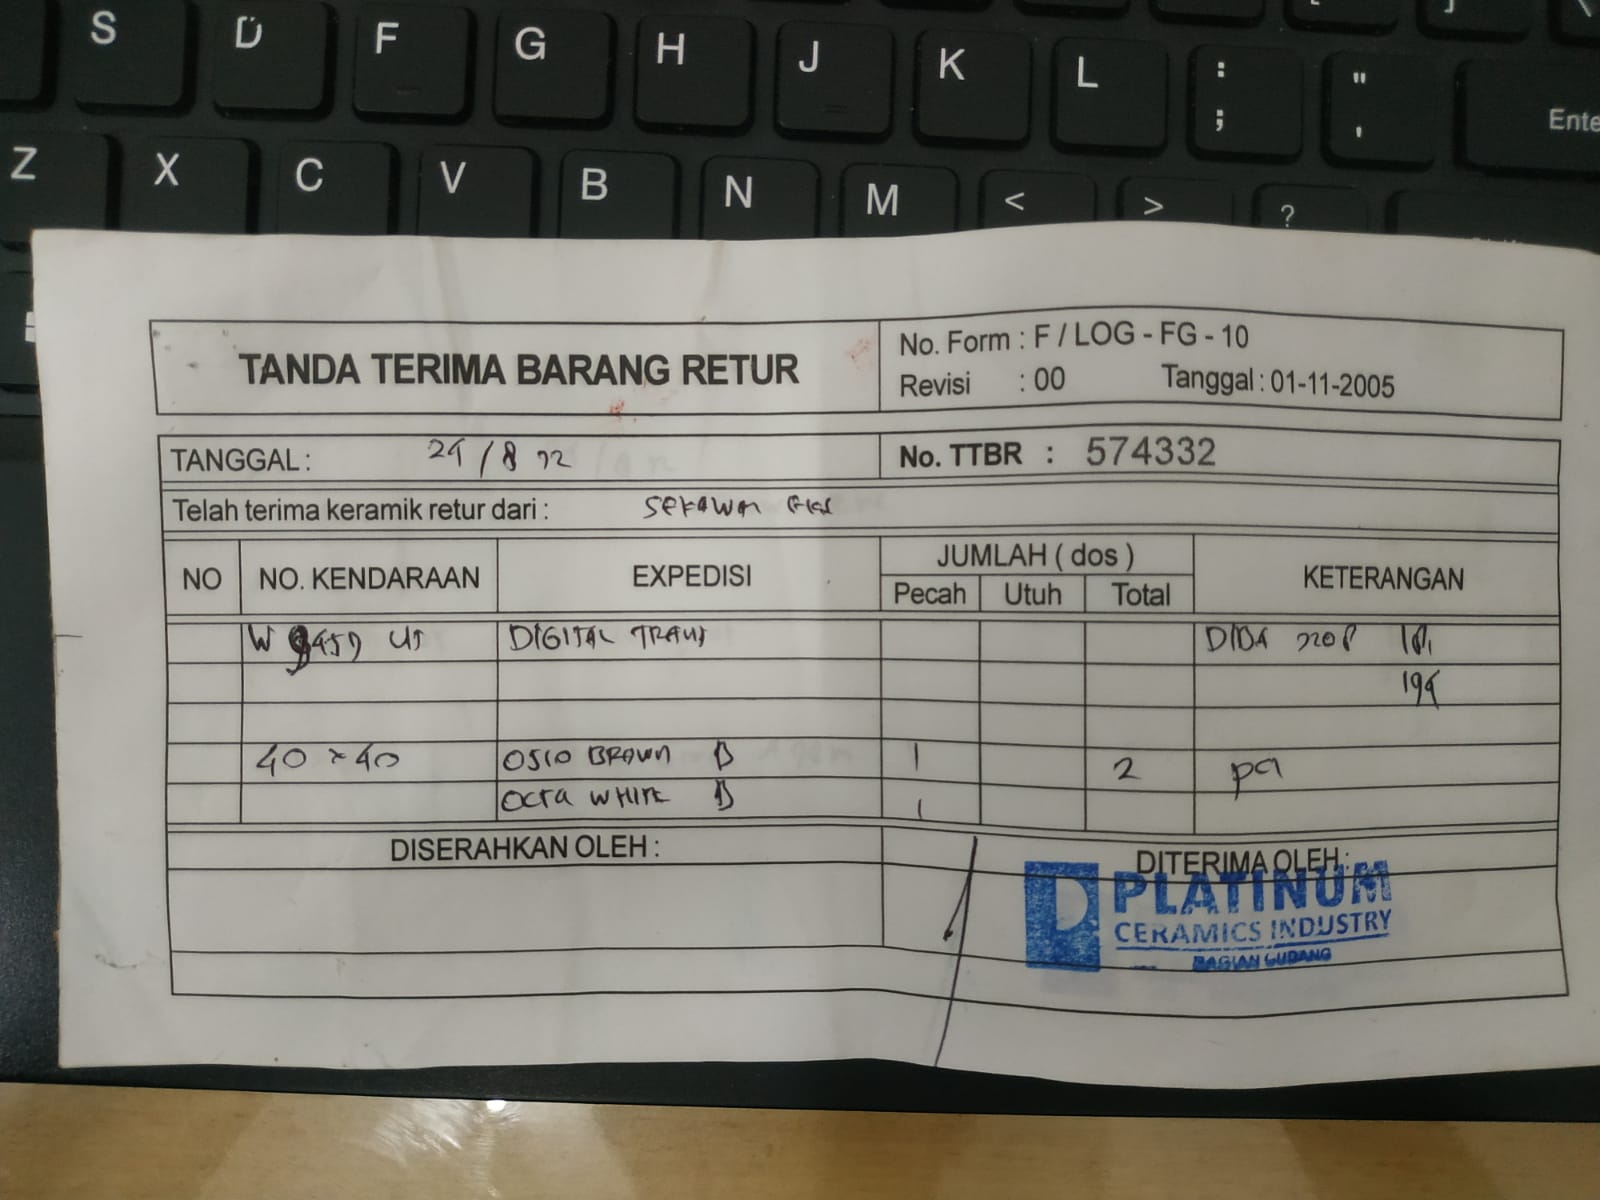 S D F G H J K L : ; " ' Ente
Z X C V B N M < > ?
TANDA TERIMA BARANG RETUR
No. Form : F / LOG - FG - 10
Revisi : 00 Tanggal : 01-11-2005
TANGGAL : /8
No. TTBR : 574332
Telah terima keramik retur dari :
NO NO. KENDARAAN EXPEDISI JUMLAH ( dos ) KETERANGAN
Pecah Utuh Total
W DIGITAL
40 x 40 OSIO BROWN B 1 2
OCTA WHITE B 1
DISERAHKAN OLEH : DITERIMA OLEH :
PLATINUM
CERAMICS INDUSTRY
BAGIAN GUDANG